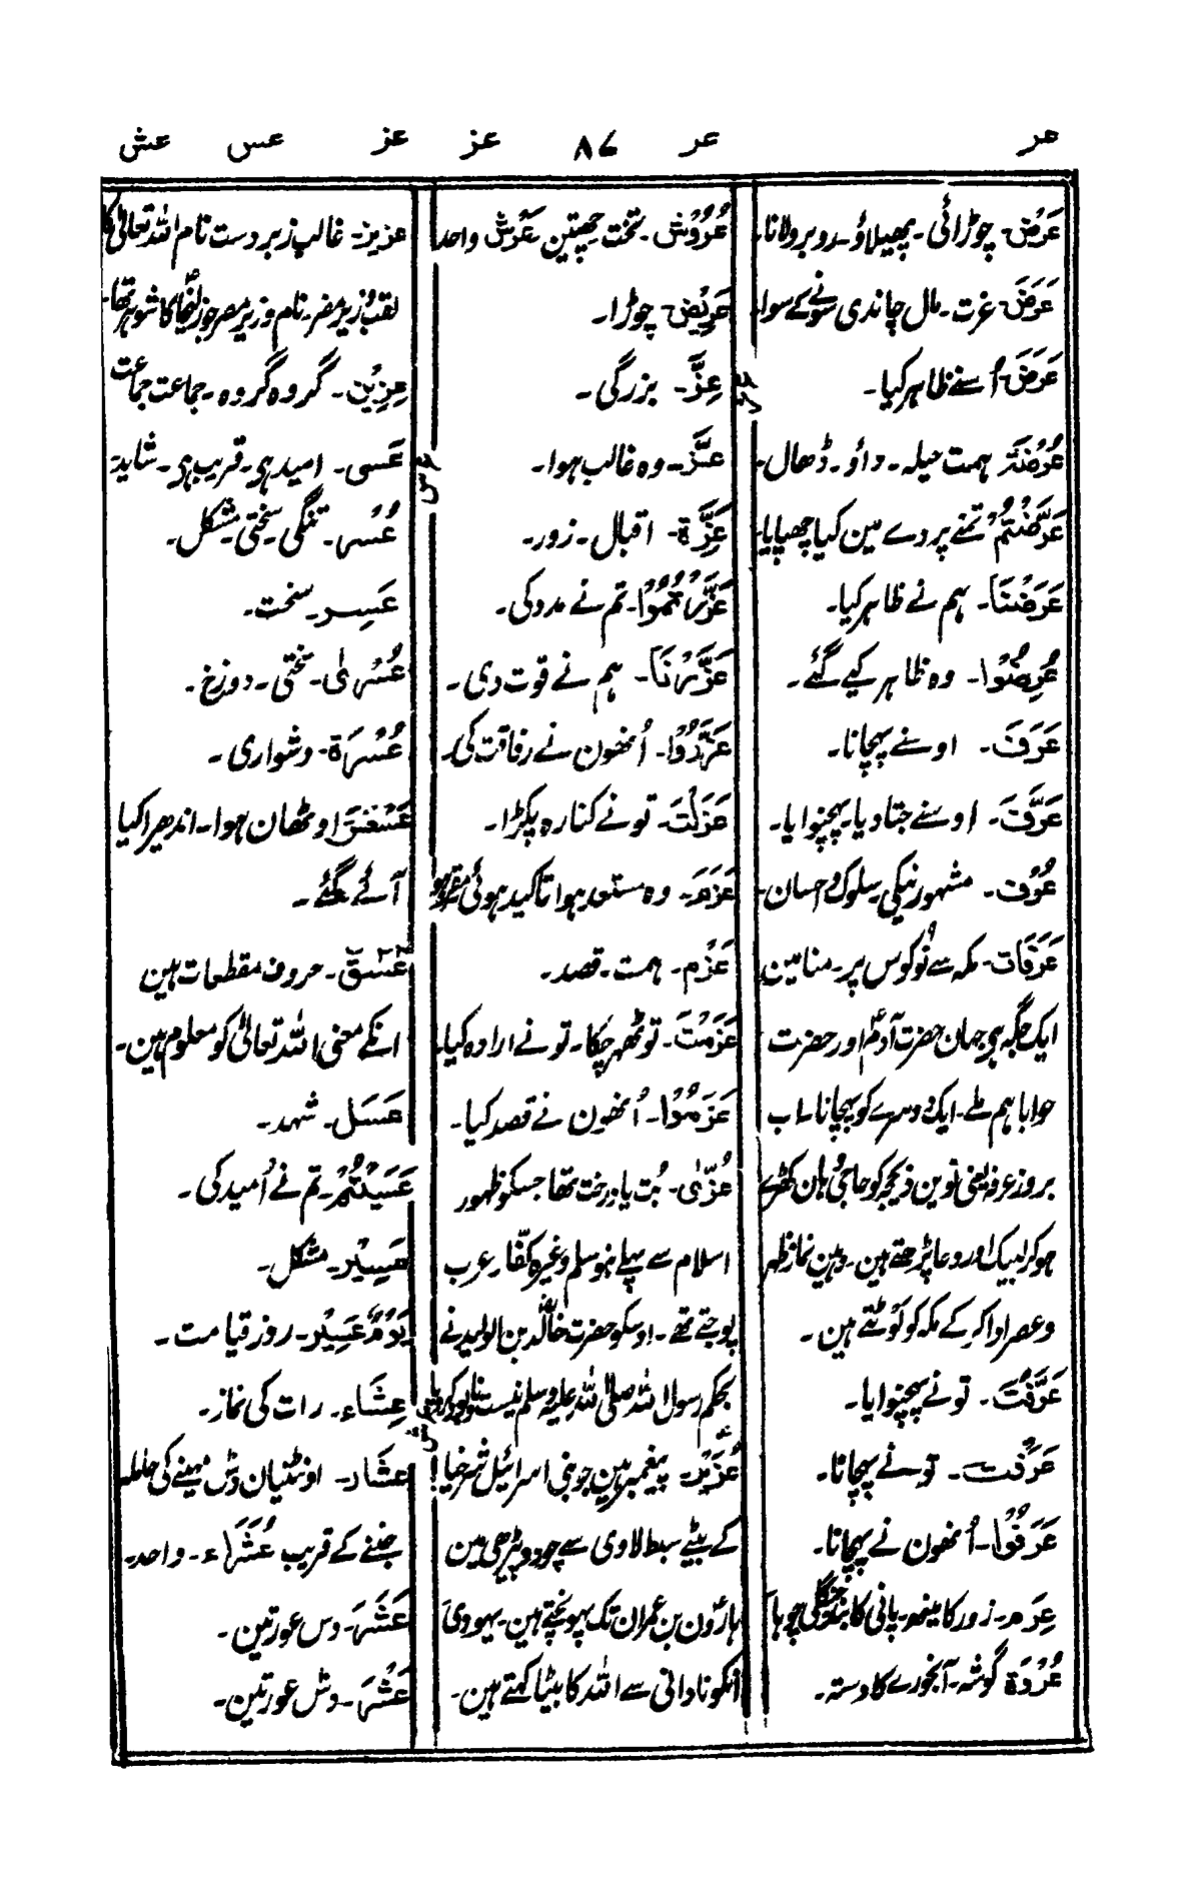 عر عر ۸۷ عز عز عس عش
عَرْض۔ چوڑائی۔ پھیلاؤ۔ روبرو لانا۔
عَرَضَ۔ عزت۔ مال چاندی سونے کے سوا
عَرَضَ۔ اُسنے ظاہر کیا۔
عُرْضَۃ ہمت حیلہ۔ داؤ۔ ڈھال۔
عَرَّضْتُمْ تمنے پردے مین کیا چھپایا۔
عَرَضْنَا۔ ہم نے ظاہر کیا۔
عُرِضُوْا۔ وہ ظاہر کیے گئے۔
عَرَفَ۔ اوسنے پہچانا۔
عَرَّفَ۔ اوسنے جتا دیا۔ پہچنوایا۔
عُرْف۔ مشہور نیکی سلوک و احسان۔
عَرَفَات۔ مکہ سے نو کوس پر۔ منا مین
ایک جگہ ہی جہان حضرت آدمؑ اور حضرت
حوا باہم ملے۔ ایک دوسرے کو پہچانا۔ اب
بروز عرفہ یعنی نوین ذیحجہ کو حاجی وہان کھڑے
ہوکر لبیک اور دعا پڑھتے ہین۔ وہین نماز ظہر
و عصر ادا کرکے مکہ کو لوٹتے ہین۔
عَرَّفْتَ۔ تونے پہچنوایا۔
عَرَفْتَ۔ تونے پہچانا۔
عَرَفُوْا۔ اُنھون نے پہچانا۔
عِرَم۔ زور کا مینھ۔ پانی کا بند جنگلی چوہا
عُرْوَۃ گوشہ۔ آبخورے کا دستہ۔
عُرُوْش۔ تخت چھتین عَرْش واحد
عَرِیْض۔ چوڑا۔
عز
عِزَّ۔ بزرگی۔
عَزَّ۔ وہ غالب ہوا۔
عِزَّۃ۔ اقبال۔ زور۔
عَزَّرْتُمُوْا۔ تم نے مدد کی۔
عَزَّزْنَا۔ ہم نے قوت دی۔
عَزَّرُوْا۔ اُنھون نے رفاقت کی۔
عَزَلْتَ۔ تونے کنارہ پکڑا۔
عَزَمَ۔ وہ مستعد ہوا تاکید ہوئی مقرر ہو
عَزْم۔ ہمت۔ قصد۔
عَزَمْتَ۔ تو ٹھہر چکا۔ تونے ارادہ کیا۔
عَزَمُوْا۔ اُنھون نے قصد کیا۔
عُزّٰی۔ بُت یا درخت تھا جسکو ظہور
اسلام سے پہلے بنو سلم وغیرہ کفّار عرب
پوجتے تھے۔ اوسکو حضرت خالدؓ بن الولید نے
بحکم رسول اللہ صلی اللہ علیہ وسلم نیست نابود کر دیا
عُزَیْر۔ پیغمبر ہین جو بنی اسرائیل شرخیا
کے بیٹے سبط لاوی سے چودہ پیڑھی مین
ہارون بن عمران تک پہونچتے ہین۔ یہودی
اُنکو نادانی سے اللہ کا بیٹا کہتے ہین۔
عزیز۔ غالب زبردست نام اللہ تعالیٰ کا
لقب وزیر مصر۔ نام وزیر مصر جو زلیخا کا شوہر تھا۔
عِزِیْن۔ گروہ گروہ۔ جماعت جماعت
عس
عَسی۔ امید ہی۔ قریب ہی۔ شاید۔
عُسْر۔ تنگی۔ سختی۔ مشکل۔
عَسِر۔ سخت۔
عُسْرٰی۔ سختی۔ دوزخ۔
عُسْرَۃ۔ دشواری۔
عَسْعَسَ اوٹھان ہوا۔ اندھیرا کیا
آئے گئے۔
عٓسٓقٓ۔ حروف مقطعات ہین
انکے معنی اللہ تعالیٰ کو معلوم ہین۔
عَسَل۔ شہد۔
عَسَیْتُمْ۔ تم نے اُمید کی۔
عَسِیْر۔ مشکل۔
یَوْمٌ عَسِیْر۔ روز قیامت۔
عش
عِشَاء۔ رات کی نماز۔
عِشَار۔ اونٹنیان دس مہینے کی حاملہ
جننے کے قریب عُشَرَاء۔ واحد۔
عَشَر۔ دس عورتین۔
عَشْر۔ دس عورتین۔